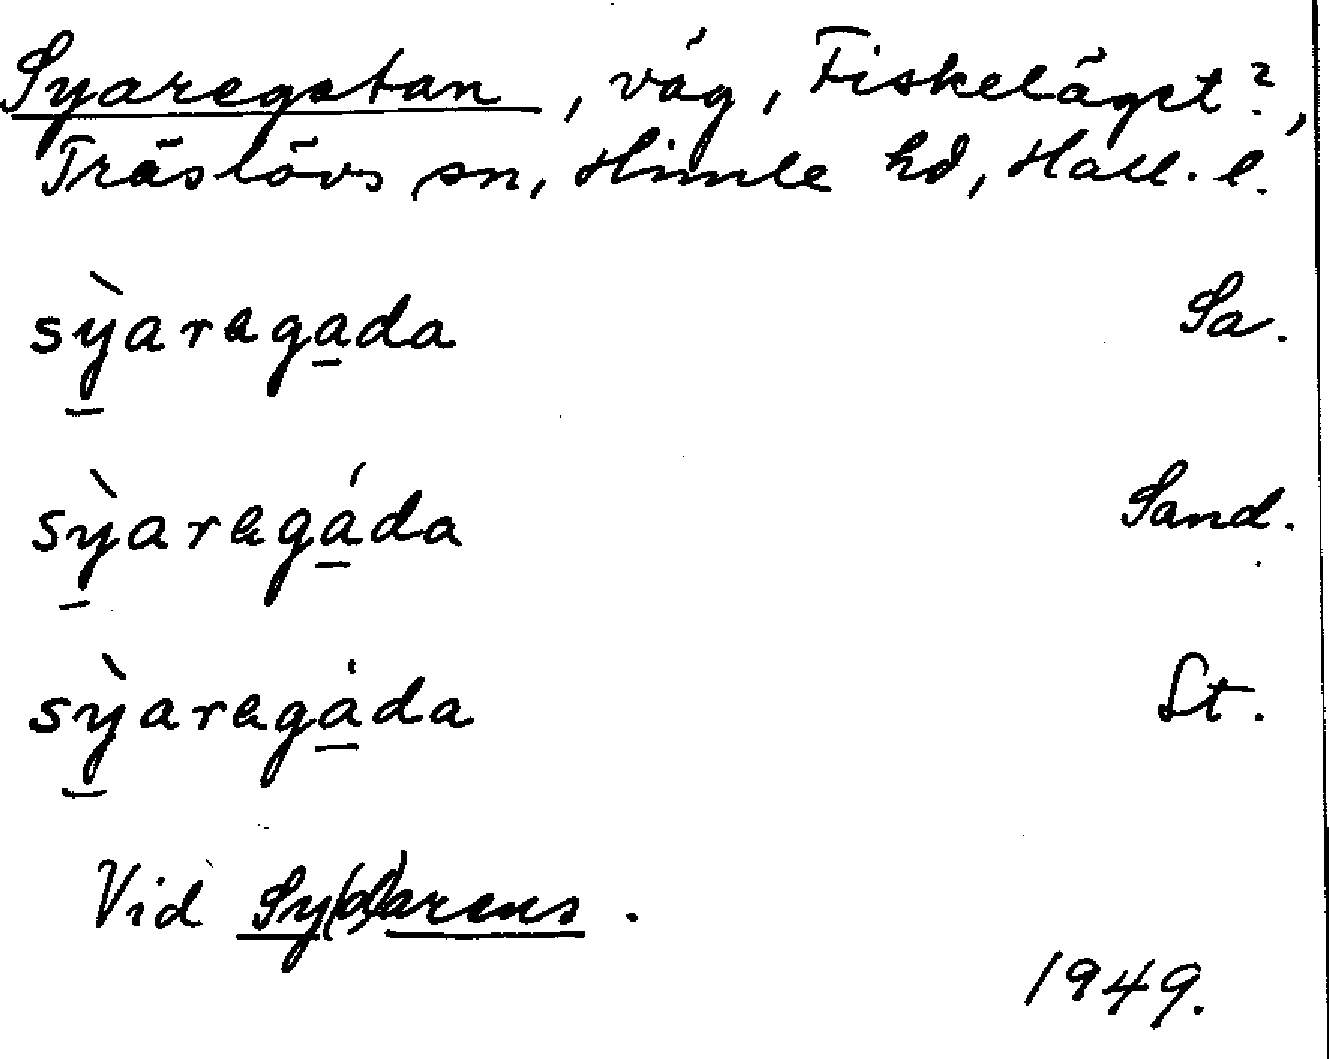 Syaregatan, väg, Fiskeläget?,
Träslövs sn, Himle hd, Hall. l.
sỳ̠arega̠da Sa.
sỳ̠aregá̠da Sand.
sỳ̠aregȧ̠da St.
Vid Sy(d)arens.
1949.